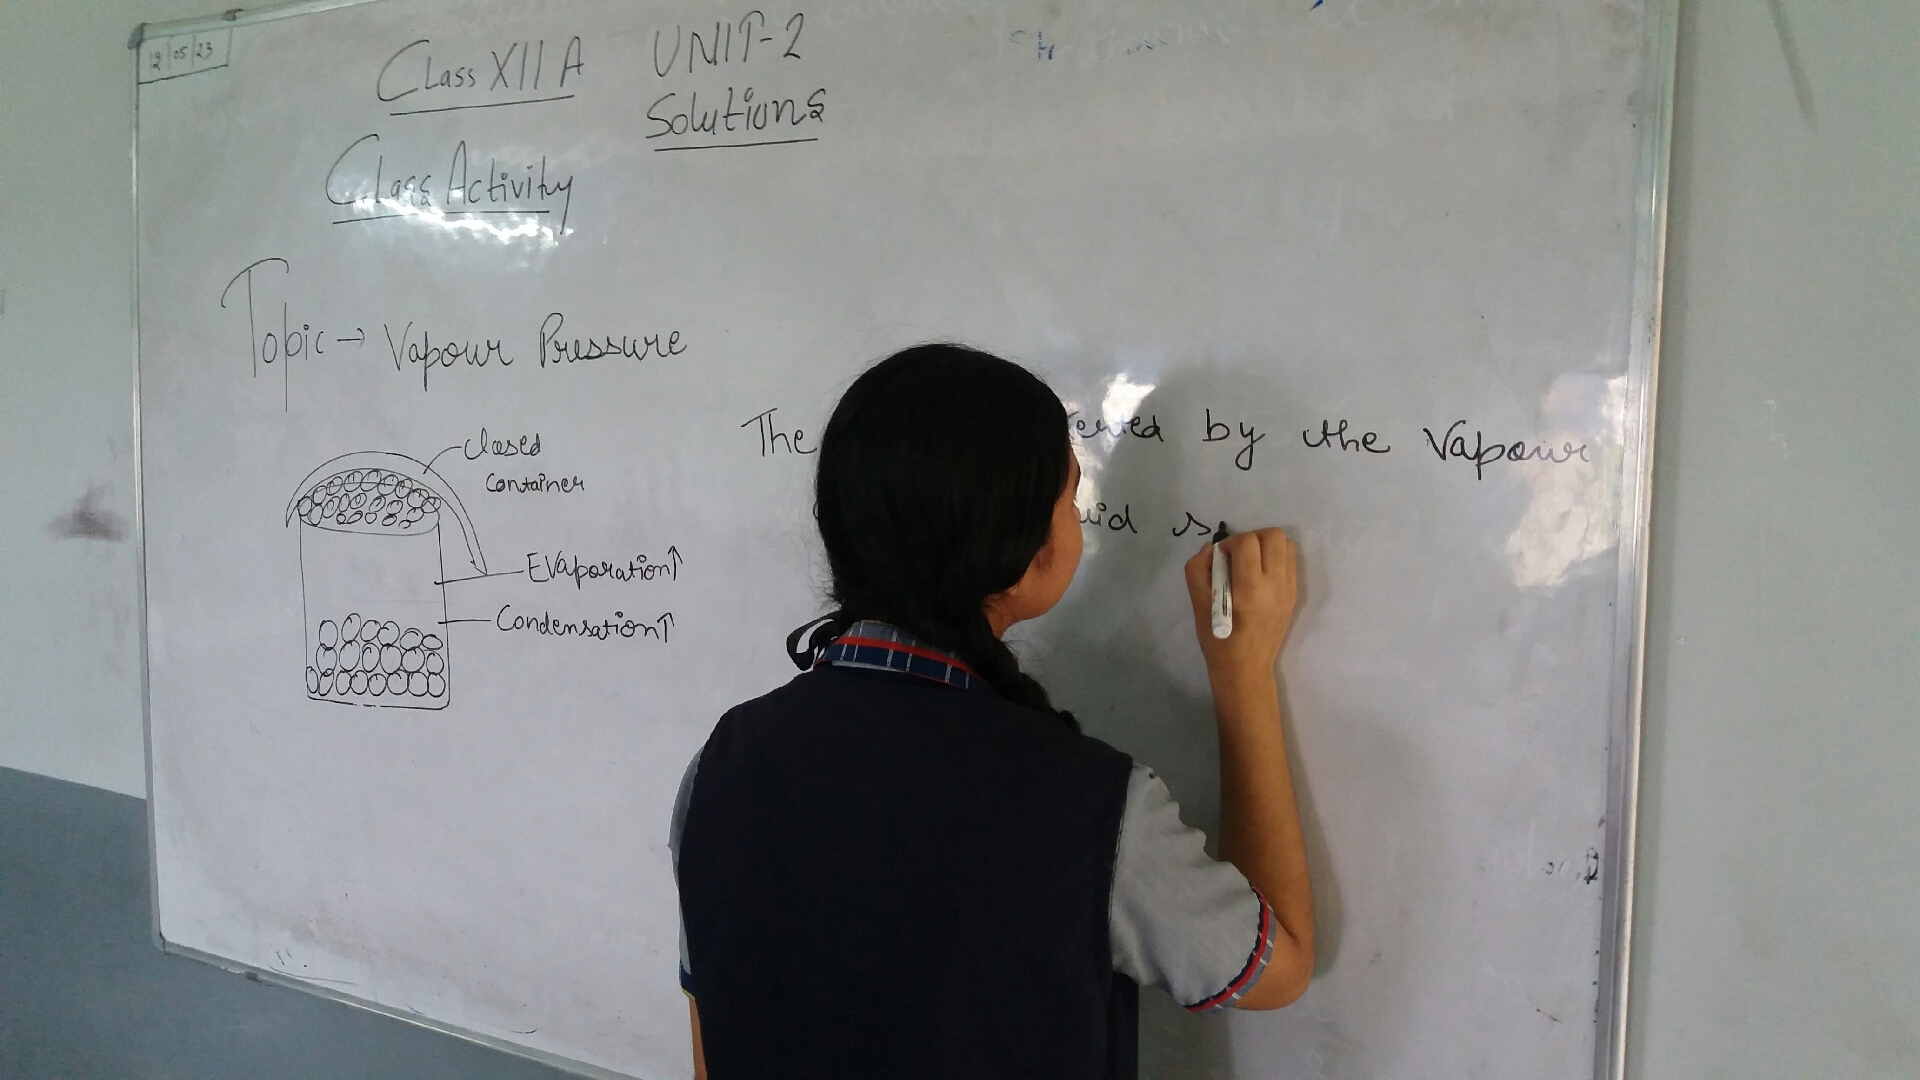 12 05 23
Class XII A
UNIT-2
Solutions
Class Activity
Topic → Vapour Pressure
closed
container
Evaporation↑
Condensation↑
The by the Vapour
s